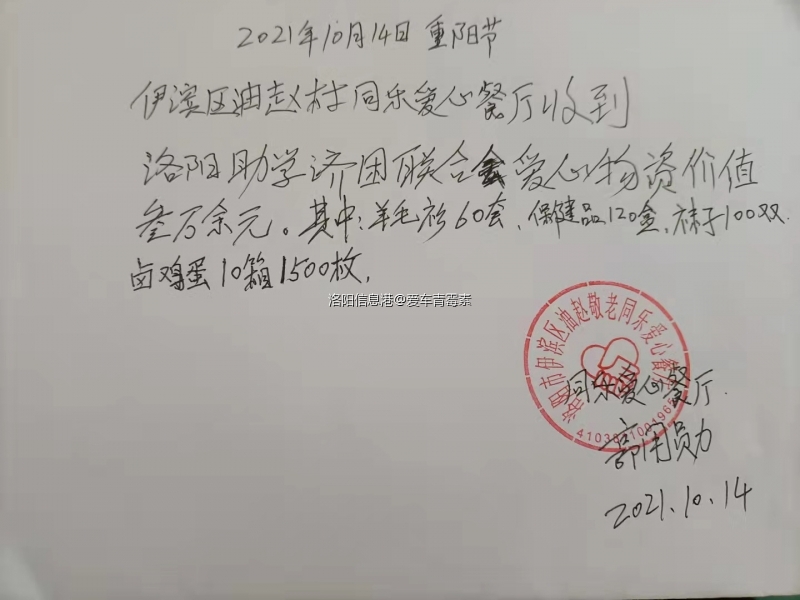 2021年10月14日 重阳节
伊滨区油赵村同乐爱心餐厅收到
洛阳助学济困联合会爱心物资价值
叁万余元。其中:羊毛衫60套、保健品120盒,袜子100双.
卤鸡蛋10箱1500枚,
洛阳信息港@爱车青霉素
洛阳市伊滨区油赵敬老同乐爱心餐厅
同乐爱心餐厅.
2021.10.14